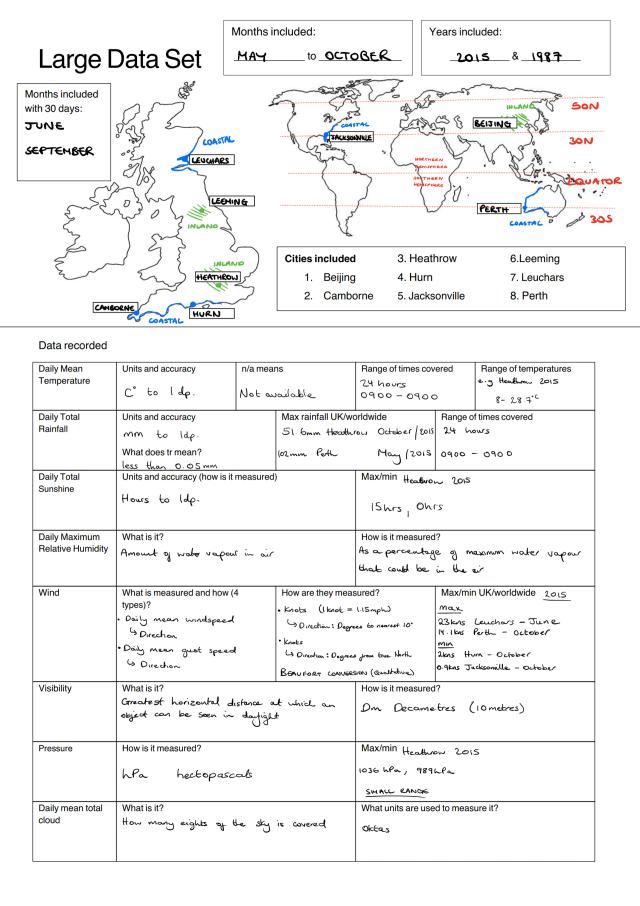 Large Data Set
Months included:
MAY to OCTOBER
Years included:
2015 & 1987
Months included
with 30 days:
JUNE
SEPTEMBER
COASTAL
LEUCHARS
LEEMING
INLAND
INLAND
HEATHROW
CAMBORNE
HURN
COASTAL
COASTAL
JACKSONVILLE
INLAND
BEIJING
NORTHERN
HEMISPHERE
SOUTHERN
HEMISPHERE
PERTH
COASTAL
50N
30N
EQUATOR
30S
Cities included
1. Beijing
2. Camborne
3. Heathrow
4. Hurn
5. Jacksonville
6.Leeming
7. Leuchars
8. Perth
Data recorded
Daily Mean
Temperature
Units and accuracy
C° to 1 dp.
n/a means
Not available
Range of times covered
24 hours
0900 - 0900
Range of temperatures
e.g Heathrow 2015
8 - 28.7°C
Daily Total
Rainfall
Units and accuracy
mm to 1dp.
What does tr mean?
less than 0.05mm
Max rainfall UK/worldwide
51.6mm Heathrow October/2015
102mm Perth May/2015
Range of times covered
24 hours
0900 - 0900
Daily Total
Sunshine
Units and accuracy (how is it measured)
Hours to 1dp.
Max/min Heathrow 2015
15hrs, 0hrs
Daily Maximum
Relative Humidity
What is it?
Amount of water vapour in air
How is it measured?
As a percentage of maximum water vapour
that could be in the air
Wind
What is measured and how (4
types)?
• Daily mean windspeed
↳ Direction
• Daily mean gust speed
↳ Direction
How are they measured?
• Knots (1knot = 1.15mph)
↳ Direction: Degrees to nearest 10°
• Knots
↳ Direction: Degrees from true North
BEAUFORT CONVERSION (Qualitative)
Max/min UK/worldwide 2015
max
23kns Leuchars - June
14.1kns Perth - October
min
2kns Hurn - October
0.9kns Jacksonville - October
Visibility
What is it?
Greatest horizontal distance at which an
object can be seen in daylight
How is it measured?
Dm Decametres (10metres)
Pressure
How is it measured?
hPa hectopascals
Max/min Heathrow 2015
1036 hPa, 989hPa
SMALL RANGE
Daily mean total
cloud
What is it?
How many eights of the sky is covered
What units are used to measure it?
Oktas